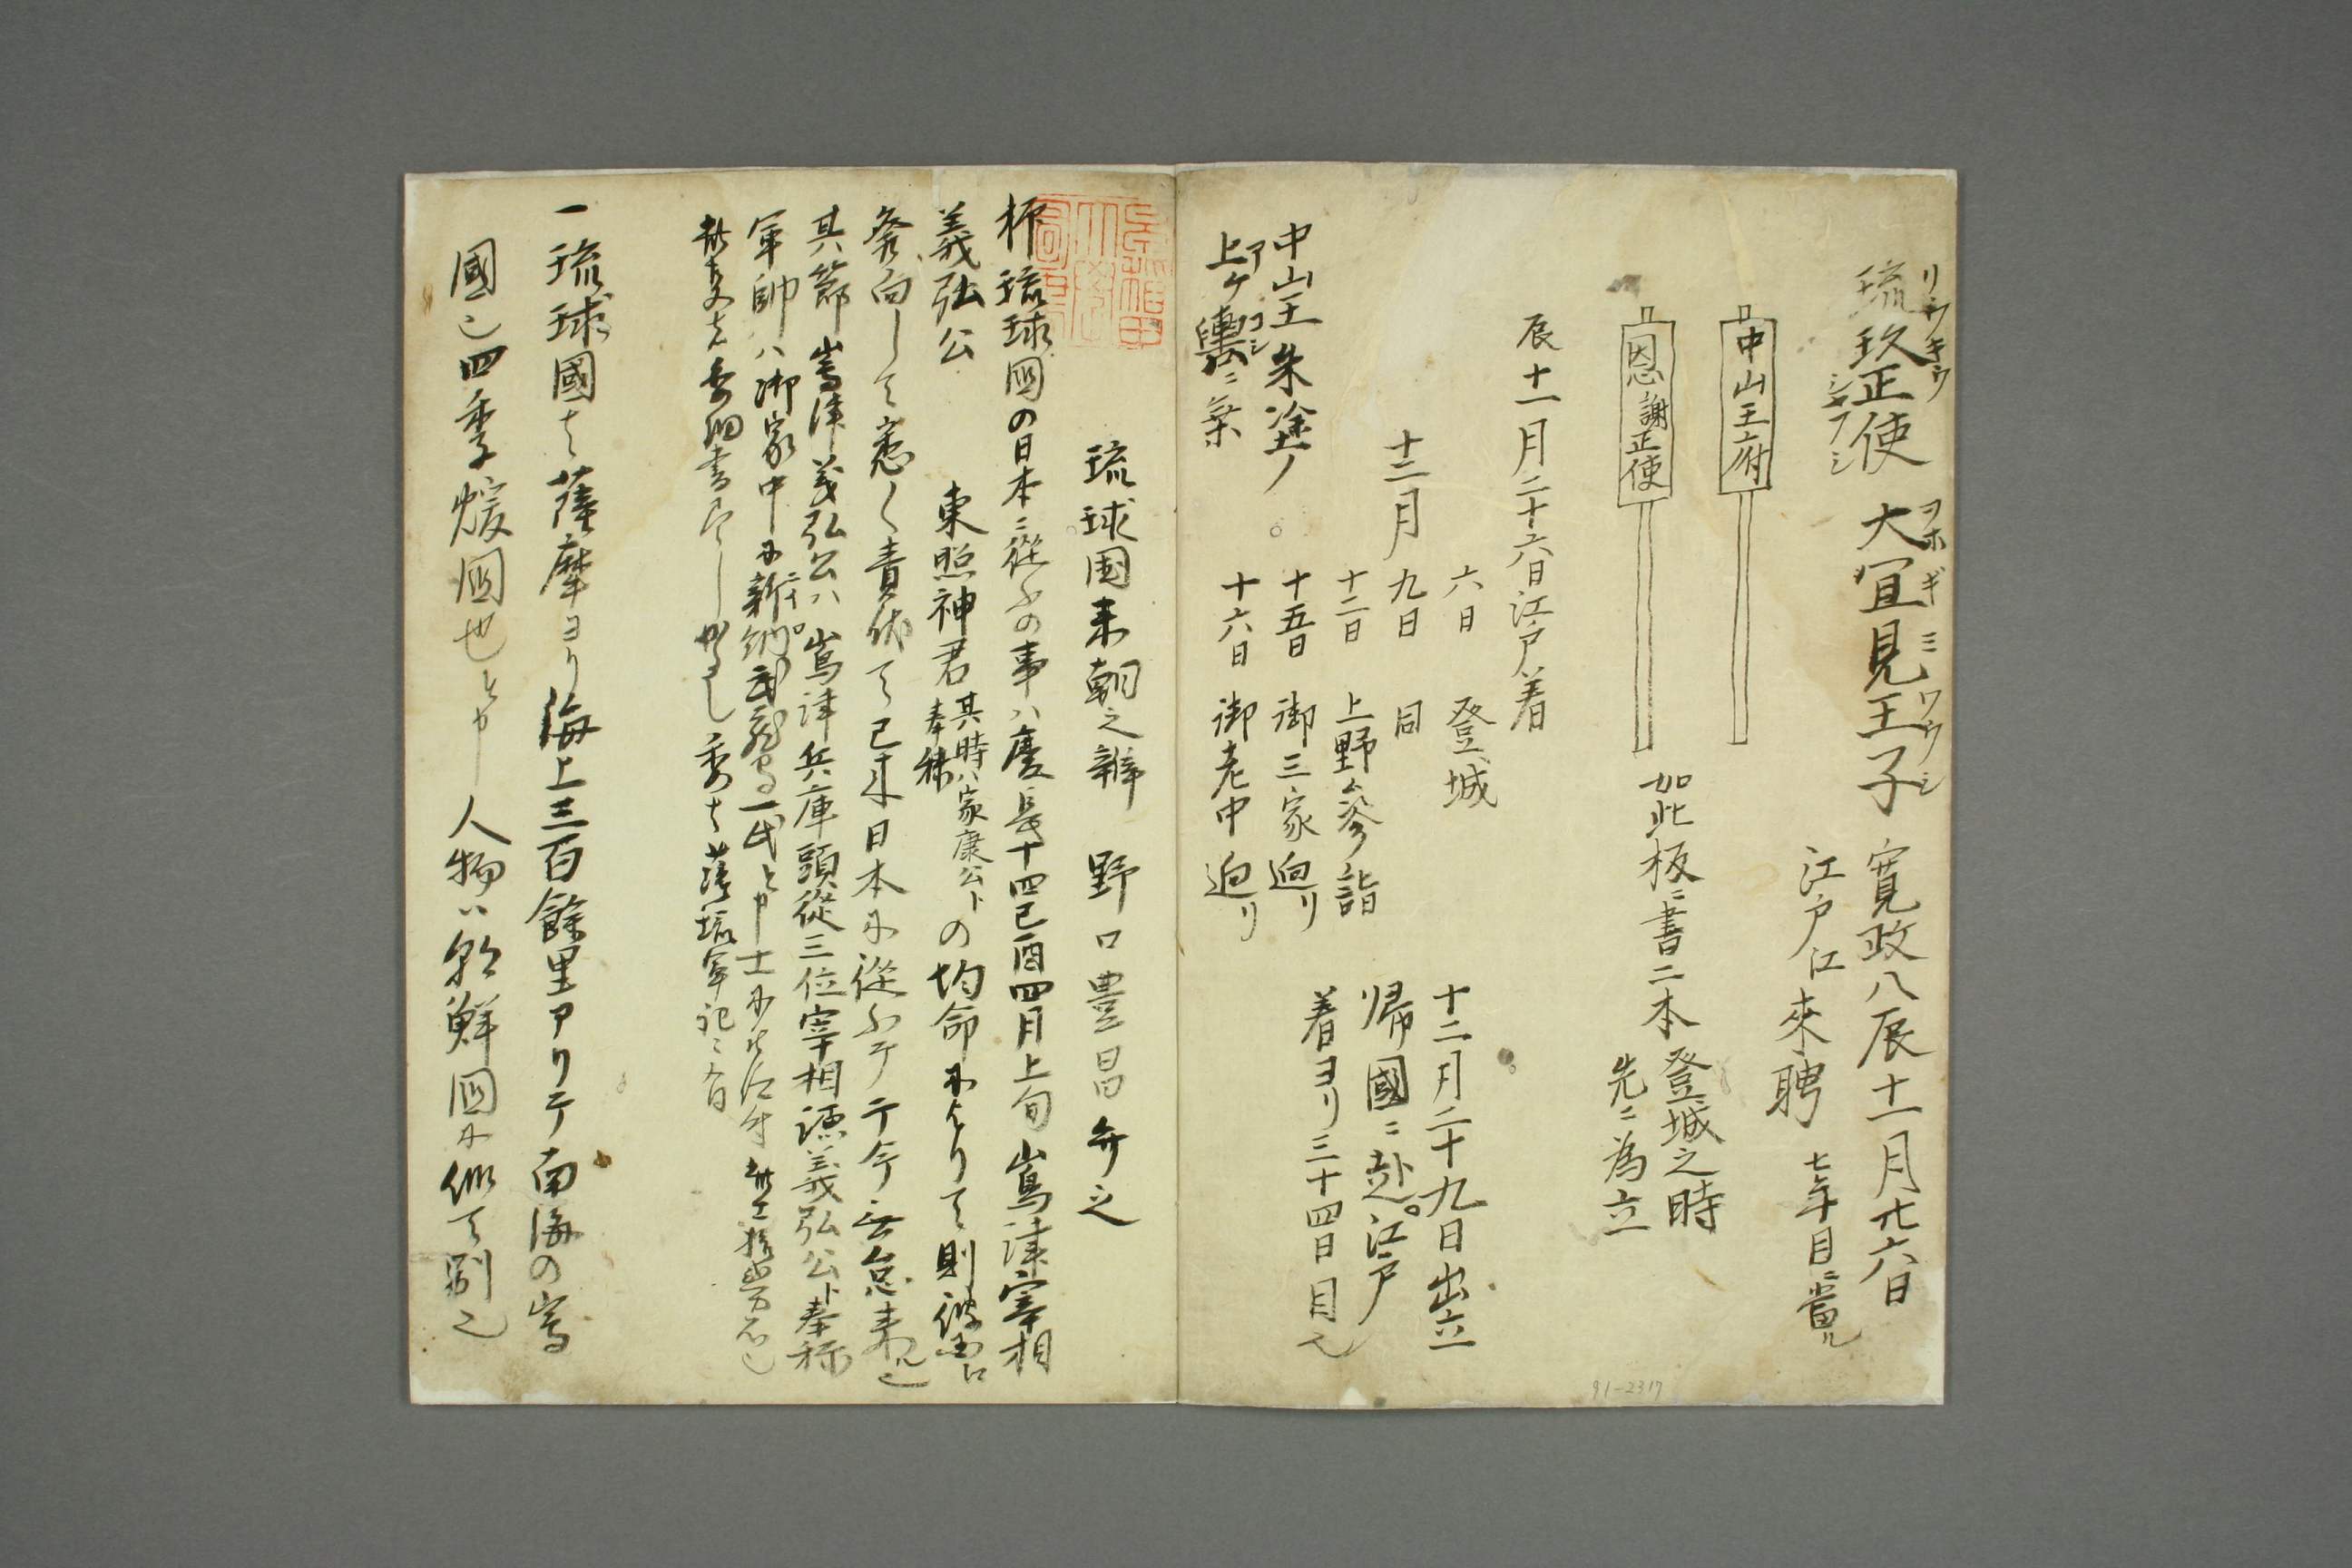 琉玖正使 大宜見王子 寛政八辰十一月廿六日
リウキウ シヤフシ ヲホギミワウシ
江戸江来聘 七年目ニ當ル
中山王府
恩謝正使
如此板ニ書二本 登城之時
先ニ為立
辰十一月二十六日江戸着
六日 登城
十二月 九日 同
十二日 上野参詣
十五日 御三家廻リ
十六日 御老中廻リ
十二月二十九日出立
帰國ニ赴。江戸
着ヨリ三十四日目也
中山王朱塗ノ
上ケ輿ニ乗
アコシ
琉球国来朝之辨 野口豊昌弁之
抑琉球國の日本ニ從ふの事ハ慶長十四己酉四月上旬嶌津宰相
義弘公
東照神君 其時ハ家康公ト奉称 の均命によりて則彼国江
發向して悉く責伏て已来日本に從ふテ于今無怠来ル也
其節嶌津義弘公ハ嶌津兵庫頭從三位宰相源義弘公ト奉称
軍帥ハ御家中に新納武蔵守一氏と申士
此
一琉球國ハ薩摩ヨリ海上三百餘里アリテ南海の嶌
國也四季煖國也と申人物ハ朝鮮国に似て別也